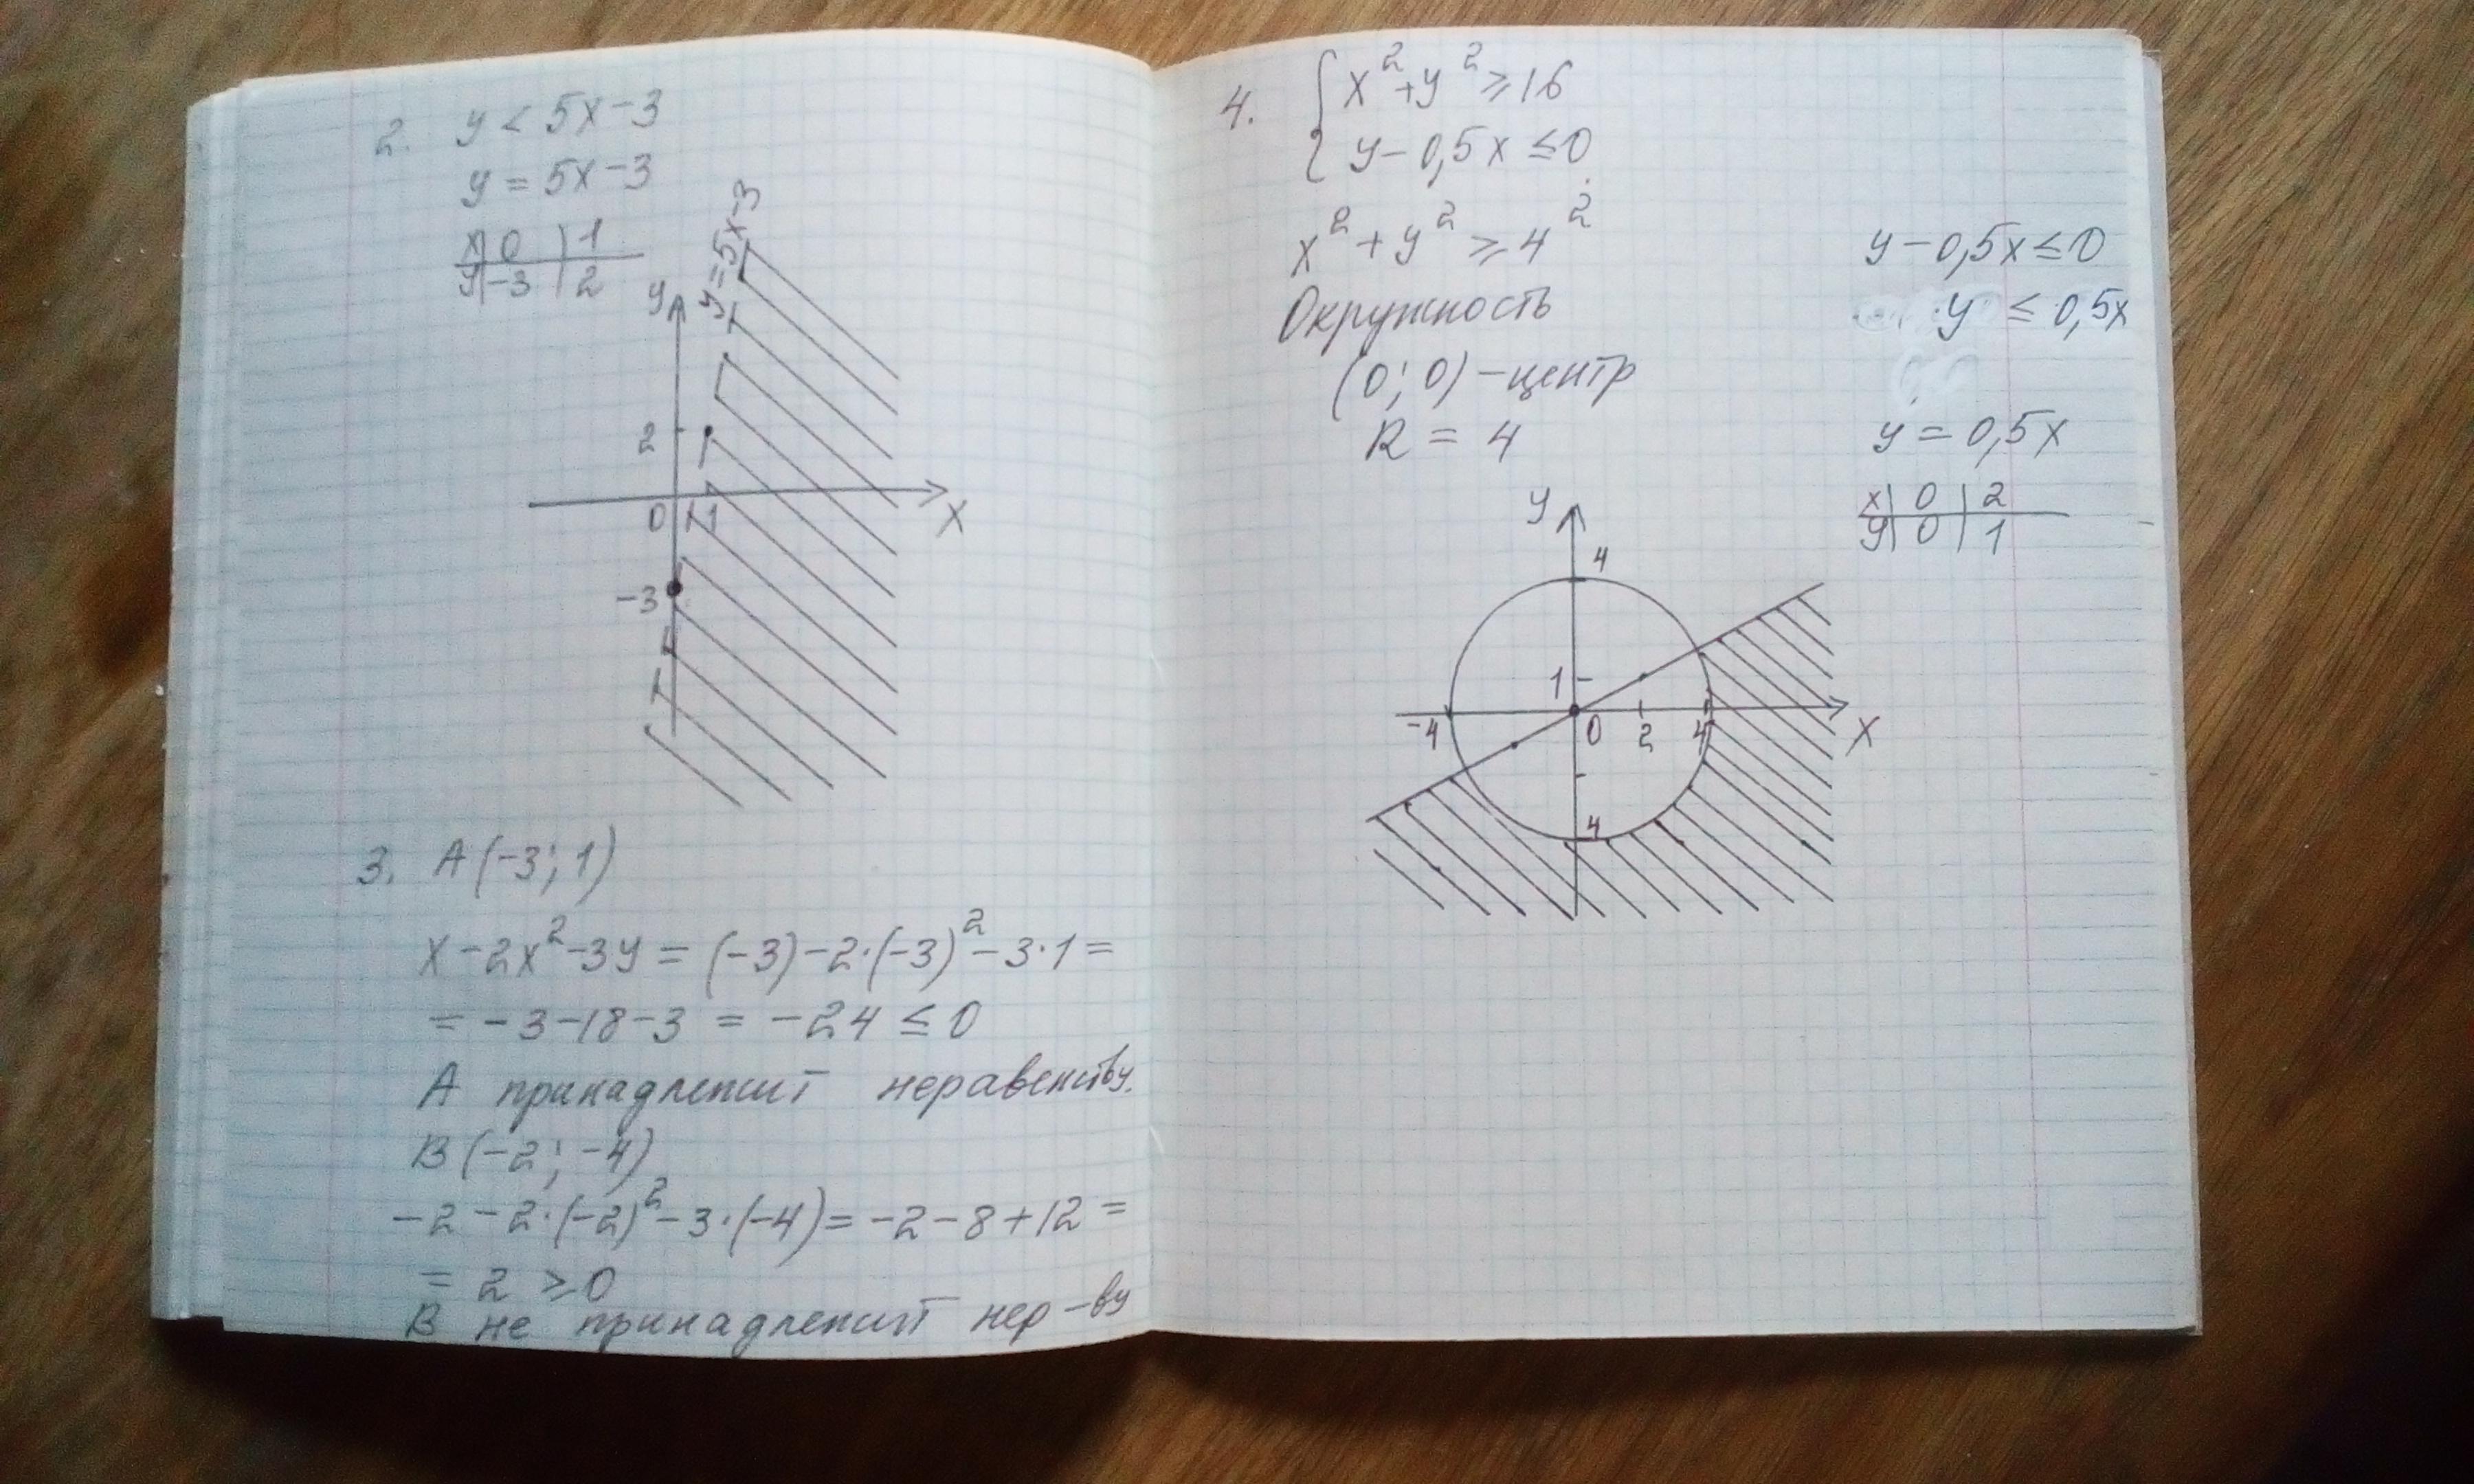 2. y < 5x-3
y = 5x-3
x | 0 | 1
y | -3 | 2
y = 5x-3
y
2
0 1
x
-3
3. A(-3; 1)
x-2x²-3y = (-3)-2·(-3)²-3·1 =
= -3-18-3 = -24 ≤ 0
A принадлежит неравенству.
B(-2; -4)
-2-2·(-2)²-3·(-4) = -2-8+12 =
= 2 ⩾ 0
B не принадлежит нер-ву
4. { x²+y² ⩾ 16
y-0,5x ≤ 0
x²+y² ⩾ 4²
Окружность
(0; 0) - центр
R = 4
y-0,5x ≤ 0
y ≤ 0,5x
y = 0,5x
x | 0 | 2
y | 0 | 1
y
4
1
-4 0 2 4 x
4